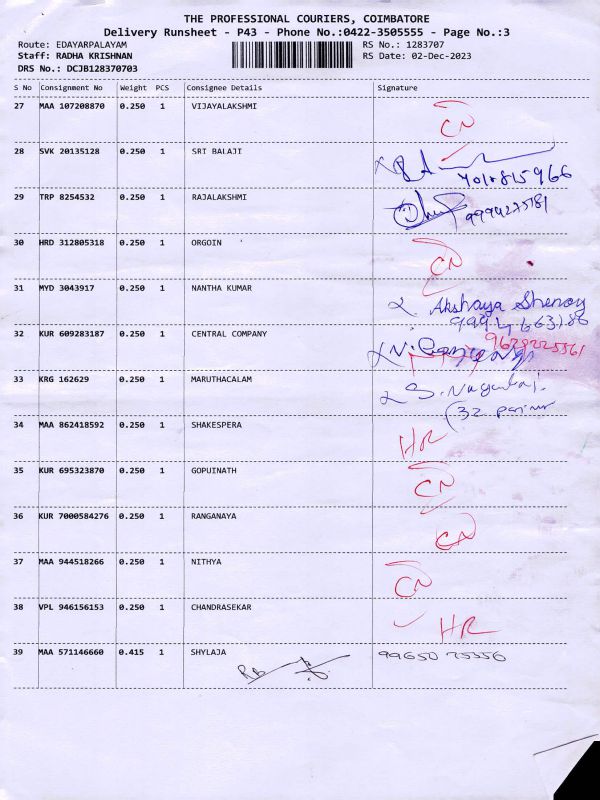 THE PROFESSIONAL COURIERS, COIMBATORE
Delivery Runsheet - P43 - Phone No.:0422-3505555 - Page No.:3
Route: EDAYARPALAYAM RS No.: 1283707
Staff: RADHA KRISHNAN RS Date: 02-Dec-2023
DRS No.: DCJB128370703
S No Consignment No Weight PCS Consignee Details Signature
27 MAA 107208870 0.250 1 VIJAYALAKSHMI CN
28 SVK 20135128 0.250 1 SRI BALAJI
29 TRP 8254532 0.250 1 RAJALAKSHMI 9994275181
30 HRD 312805318 0.250 1 ORGOIN CN
31 MYD 3043917 0.250 1 NANTHA KUMAR Akshaya Shenoy
32 KUR 609283187 0.250 1 CENTRAL COMPANY
33 KRG 162629 0.250 1 MARUTHACALAM
34 MAA 862418592 0.250 1 SHAKESPERA HR
35 KUR 695323870 0.250 1 GOPUINATH CN
36 KUR 7000584276 0.250 1 RANGANAYA CN
37 MAA 944518266 0.250 1 NITHYA CN
38 VPL 946156153 0.250 1 CHANDRASEKAR HR
39 MAA 571146660 0.415 1 SHYLAJA 99650 75356